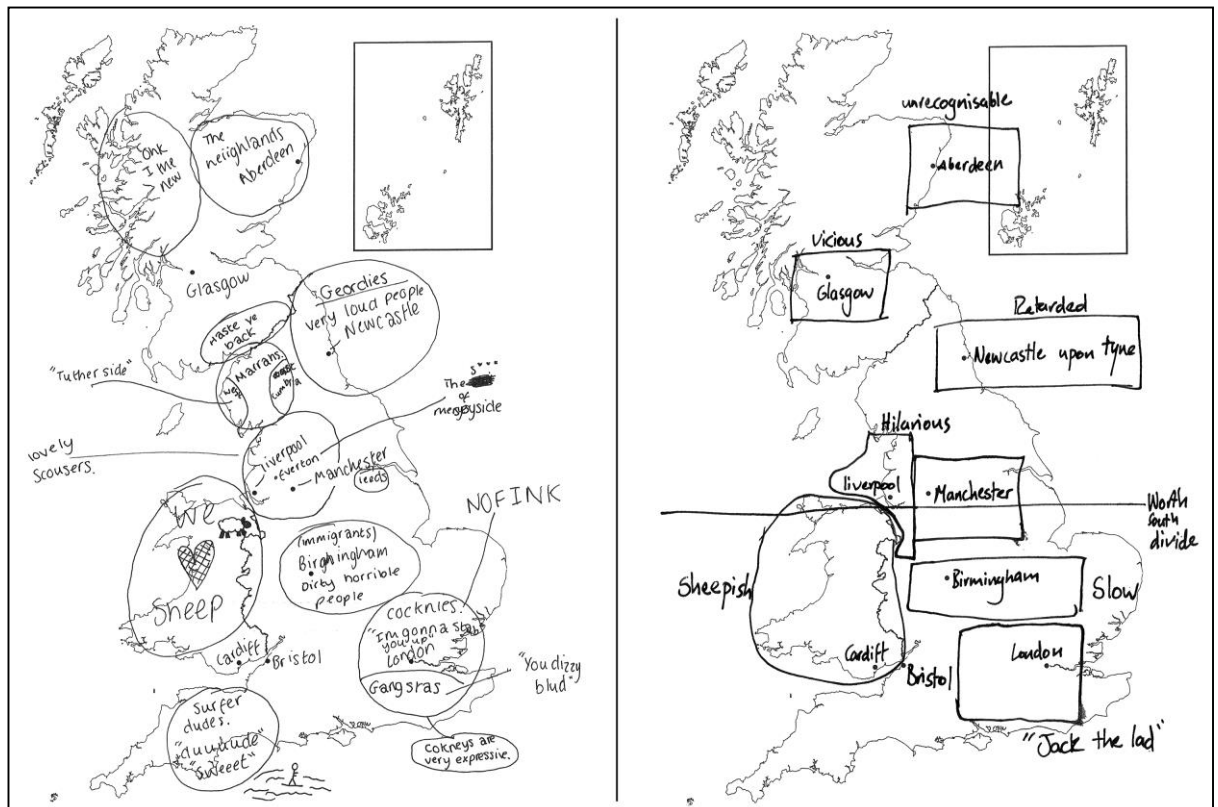 Ohk
I the
new
The
neiighlands
Aberdeen
Glasgow
Geordies
very loud people
Newcastle
Haste ye
back
Marrans.
West
east
cumbria
"Tuther side"
The s***
of
merseyside
lovely
scousers.
liverpool
Everton
Manchester
leeds
We
Sheep
NOFINK
(immigrants)
Birmingham
Dirty horrible
people
cocknies.
"I'm gonna stab
you up"
London
Gangstas
"You dizzy
blud"
Cardiff
Bristol
Surfer
dudes.
"duuudude"
"sweeet"
Cokneys are
very expressive.
unrecognisable
Aberdeen
Vicious
Glasgow
Retarded
Newcastle upon tyne
Hilarious
liverpool
Manchester
North
south
divide
Sheepish
Birmingham
Slow
Cardiff
Bristol
London
"Jack the lad"